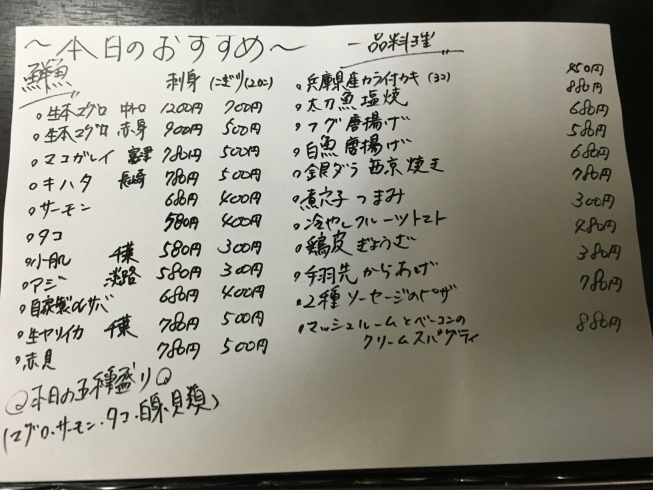 ～本日のおすすめ～
鮮魚 刺身 にぎり(2カン)
○生本マグロ 中トロ 1200円 700円
○生本マグロ 赤身 900円 500円
○マコガレイ 富津 780円 500円
○キハタ 長崎 780円 500円
○サーモン 680円 400円
○タコ 580円 400円
○小肌 千葉 580円 300円
○アジ 淡路 580円 300円
○自家製〆サバ 680円 400円
○生ヤリイカ 千葉 780円 500円
○赤貝 780円 500円
◎本日の五種盛り◎
(マグロ・サーモン・タコ・白身・貝類)
一品料理
○兵庫県産カラ付カキ(3コ) 880円
○太刀魚塩焼 680円
○フグ唐揚げ 580円
○白魚唐揚げ 680円
○銀ダラ西京焼き 780円
○煮穴子つまみ
○冷やしフルーツトマト 300円
○鶏皮ぎょうざ 480円
○手羽先からあげ 380円
○2種ソーセージのピザ 780円
○マッシュルームとベーコンの
クリームスパゲティ 880円